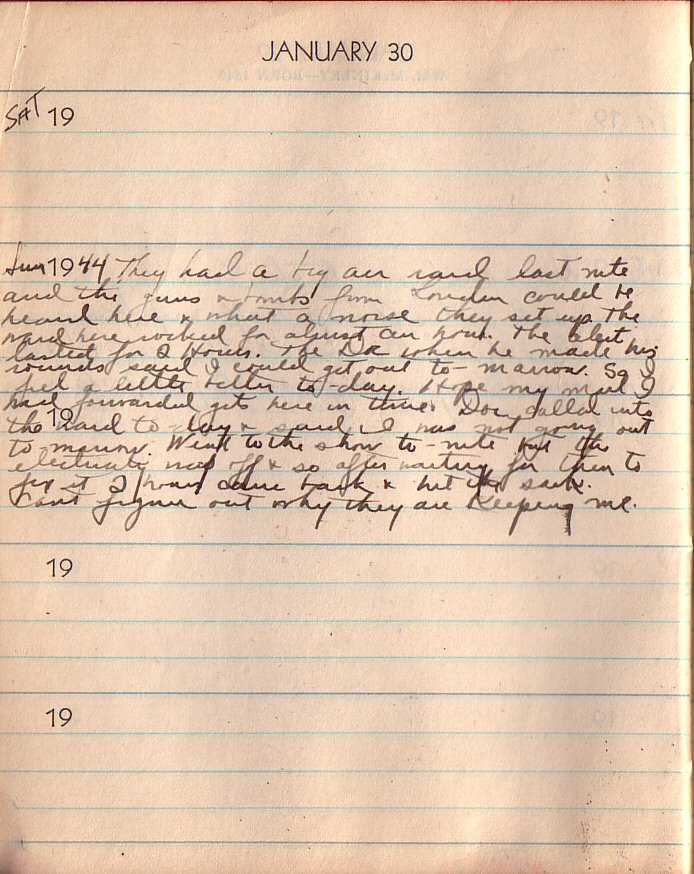 JANUARY 30
SAT 19
Sun 1944 They had a big air raid last nite
and the guns & bombs from London could be
heard here & what a noise they set up. The
ward here rocked for almost an hour. The alert
lasted for 2 Hours. The Doc when he made his
rounds said I could get out to-morrow. So I
feel a little better to-day. Hope my mail I
had forwarded gets here in time. Doc called into
19
the ward to-day & said I was not going out
to morrow. Went to the show to-nite but the
electricity was off & so after waiting for them to
fix it 2 hours came back & hit the sack.
Cant figure out why they are keeping me.
19
19